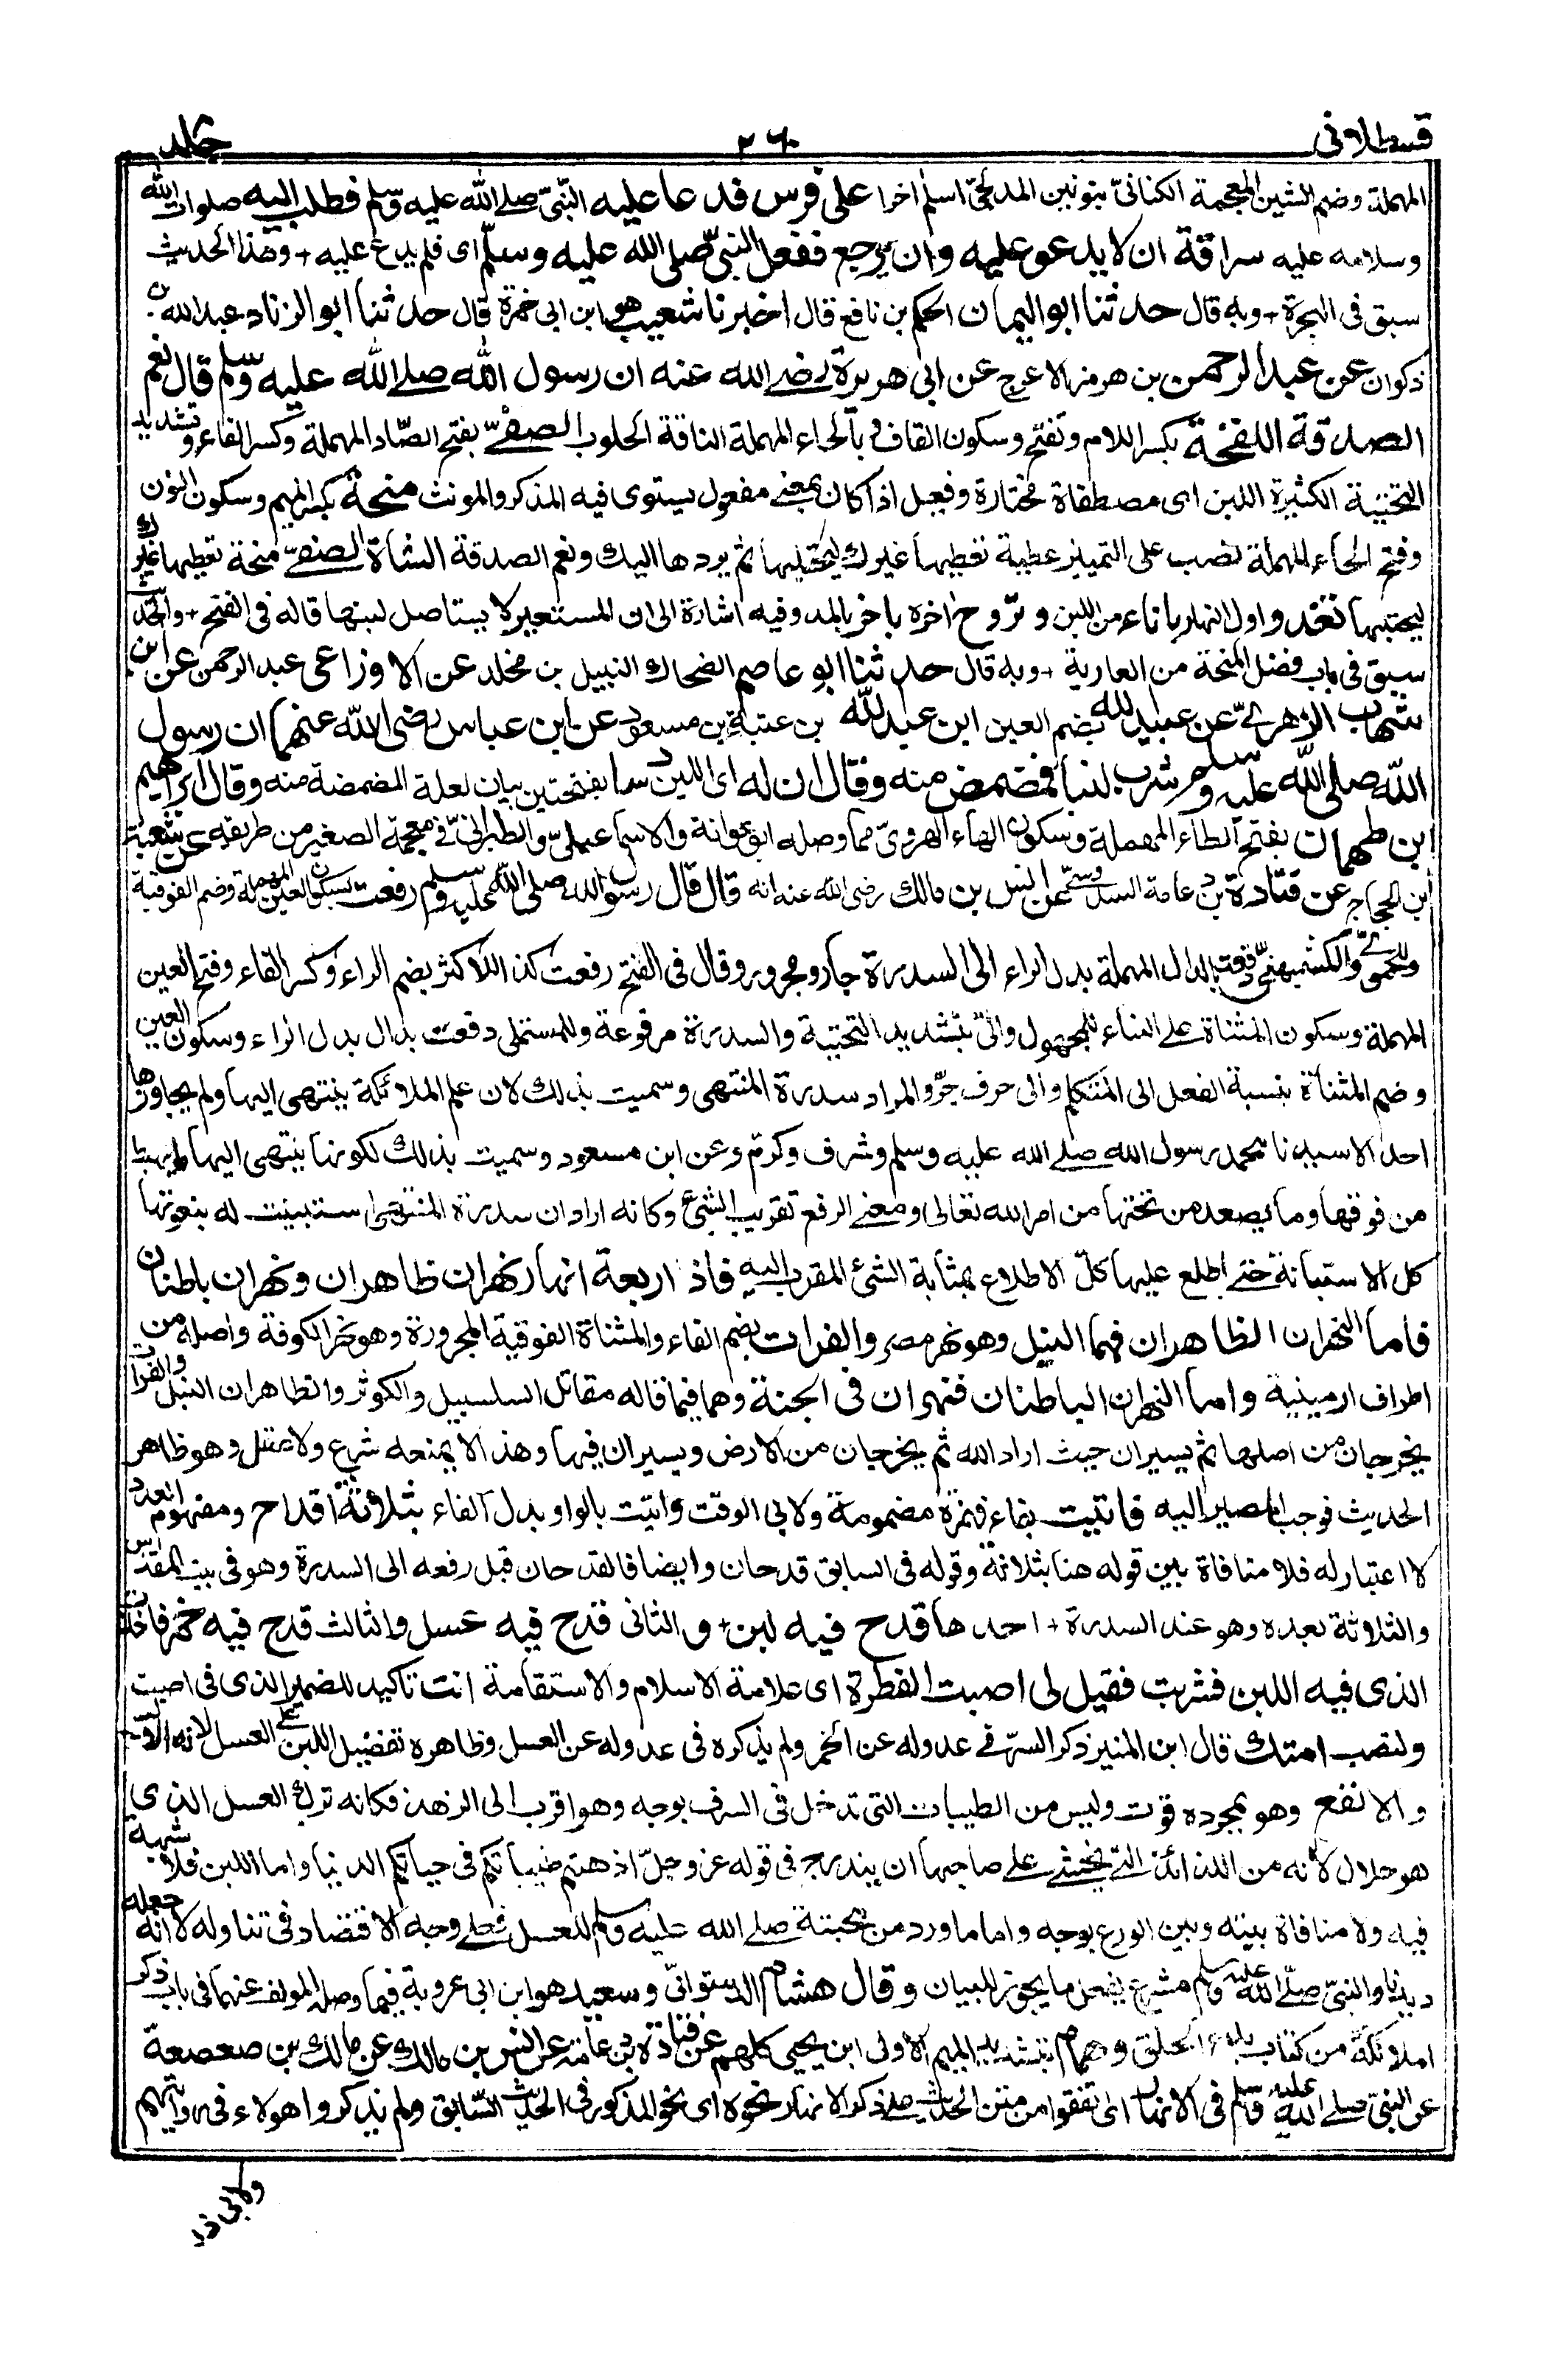 قسطلانی ۲۶۰ جلد
المهملة وضم الشين المعجمة الكنانىّ بنونين المدلجىّ اسلم اخرا على فرس فدعا عليه النبّى صلى الله عليه وسلم فطلب اليه صلوات الله
وسلامه عليه سراقة ان لا يدعو عليه وان يرجع ففعل النبىّ صلى الله عليه وسلم اى فلم يدع عليه + وهذا الحديث
سبق فى الهجرة + وبه قال حدثنا ابو اليمان الحكم بن نافع قال اخبرنا شعيب هو ابن ابى حمزة قال حدثنا ابو الزناد عبد الله بن
ذكوان عن عبد الرحمن بن هرمز الاعرج عن ابى هريرة رضى الله عنه ان رسول الله صلى الله عليه وسلم قال نعم
الصدقة اللقحة بكسر اللام وتفتح وسكون القاف وبالحاء المهملة الناقة الحلوب الصفىّ بفتح الصّاد المهملة وكسر الفاء وتشديد
التحتية الكثيرة اللبن اى مصطفاة مختارة وفعيل اذا كان بمعنى مفعول يستوى فيه المذكر والمونث منحة بكسر الميم وسكون النون
وفتح الحاء المهملة نصب على التمييز عطية تعطيها غيرك ليحتلبها ثم يردها اليك ونعم الصدقة الشاة الصفىّ منحة تعطيها غيرك
ليحتلبها تغدو اول النهار باناء من اللبن وتروح اخره باخر بالمد وفيه اشارة الى ان المستعير لا يستاصل لبنها قاله فى الفتح + والحديث
سبق فى باب فضل المنحة من العارية + وبه قال حدثنا ابو عاصم الضحاك النبيل بن مخلد عن الاوزاعى عبد الرحمن عن ابن
شهاب الزهرىّ عن عبيد الله بضم العين ابن عبد الله بن عتبة بن مسعود عن ابن عباس رضى الله عنهما ان رسول
الله صلى الله عليه وسلم شرب لبنا فمضمض منه وقال ان له اى اللبن دسما بفتحتين بيان لعلة المضمضة منه وقال ابراهيم
ابن طهمان بفتح الطاء المهملة وسكون الهاء الهروىّ مما وصله ابو عوانة والاسماعيلىّ والطبرانىّ فى معجمه الصغير من طريقه عن شعبة
ابن الحجاج عن قتادة بن دعامة السدوسىّ عن انس بن مالك رضى الله عنه انه قال قال رسول الله صلى الله عليه وسلم رفعت بسكون العين المهملة وضم الفوقية
وللحموىّ والكشميهنىّ دفعت بالدال المهملة بدل الراء الى السدرة جار ومجرور وقال فى الفتح رفعت كذا للاكثر بضم الراء وكسر الفاء وفتح العين
المهملة وسكون المثناة على البناء للمجهول والىّ بتشديد التحتية والسدرة مرفوعة وللمستملى دفعت بدال بدل الراء وسكون العين
وضم المثناة بنسبة الفعل الى المتكلم والى حرف جرّ والمراد سدرة المنتهى وسميت بذلك لان علم الملائكة ينتهى اليها ولم يجاوزها
احد الا سيدنا محمد رسول الله صلى الله عليه وسلم وشرف وكرم وعن ابن مسعود وسميت بذلك لكونها ينتهى اليها ما يهبط
من فوقها وما يصعد من تحتها من امر الله تعالى ومعنى الرفع تقريب الشئ وكانه اراد ان سدرة المنتهى استبينت له بنعوتها
كل الاستبانة حتى اطلع عليها كلّ الاطلاع بمثابة الشئ المقرب اليه فاذا اربعة انهار نهران ظاهران ونهران باطنان
فاما النهران الظاهران فهما النيل وهو نهر مصر والفرات بضم الفاء والمثناة الفوقية المجرورة وهو نهر الكوفة واصله من
اطراف ارمينية واما النهران الباطنان فنهران فى الجنة وهما فيما قاله مقاتل السلسبيل والكوثر والظاهران النيل والفرات
يخرجان من اصلها ثم يسيران حيث اراد الله ثم يخرجان من الارض ويسيران فيها وهذا لا يمنعه شرع ولا عقل وهو ظاهر
الحديث فوجب المصير اليه فاتيت بفاء فهمزة مضمومة ولابى الوقت واتيت بالواو بدل الفاء بثلاثة اقداح ومفهوم العدد
لا اعتبار له فلا منافاة بين قوله هنا بثلاثة وقوله فى السابق قدحان وايضا فالقدحان قبل رفعه الى السدرة وهو فى بيت المقدس
والثلاثة بعده وهو عند السدرة + احدها قدح فيه لبن + والثانى قدح فيه عسل والثالث قدح فيه خمر فاخذت
الذى فيه اللبن فشربت فقيل لى اصبت الفطرة اى علامة الاسلام والاستقامة انت تاكيد للضمير الذى فى اصبت
ولنصب امتك قال ابن المنير ذكر السرّ فى عدوله عن الخمر ولم يذكره فى عدوله عن العسل وظاهره تفضيل اللبن على العسل لانه
والانفع وهو بمجرده قوت وليس من الطيبات التى تدخل فى السرف بوجه وهو اقرب الى الزهد فكانه ترك العسل الذى
هو حلال لانه من اللذائذ التى يخشى على صاحبها ان يندرج فى قوله عز وجلّ اذهبتم طيباتكم فى حياتكم الدنيا واما اللبن فلا شبهة
فيه ولا منافاة بينه وبين الورع بوجه واما ما ورد من محبته صلى الله عليه وسلم للعسل فعلى وجه الاقتصاد فى تناوله لا انه جعله
ديدنا والنبىّ صلّى الله عليه وسلم مشرع يفعل ما يجوز للبيان وقال هشام الدستوانىّ وسعيد هو ابن ابى عروبة فيما وصله المولف عنهما فى باب ذكر
املائكة من كتاب بدء الخلق وهمام بتشديد الميم الاولى ابن يحيى كلهم عن قتادة بن دعامة عن انس بن مالك عن مالك بن صعصعة
عن النبى صلى الله عليه وسلم فى الانهار اى اتفقوا من متن الحديث على ذكر الانهار نحوه اى نحو المذكور فى الحديث السّابق ولم يذكروا هولاء فى روايتهم
ولابى ذر